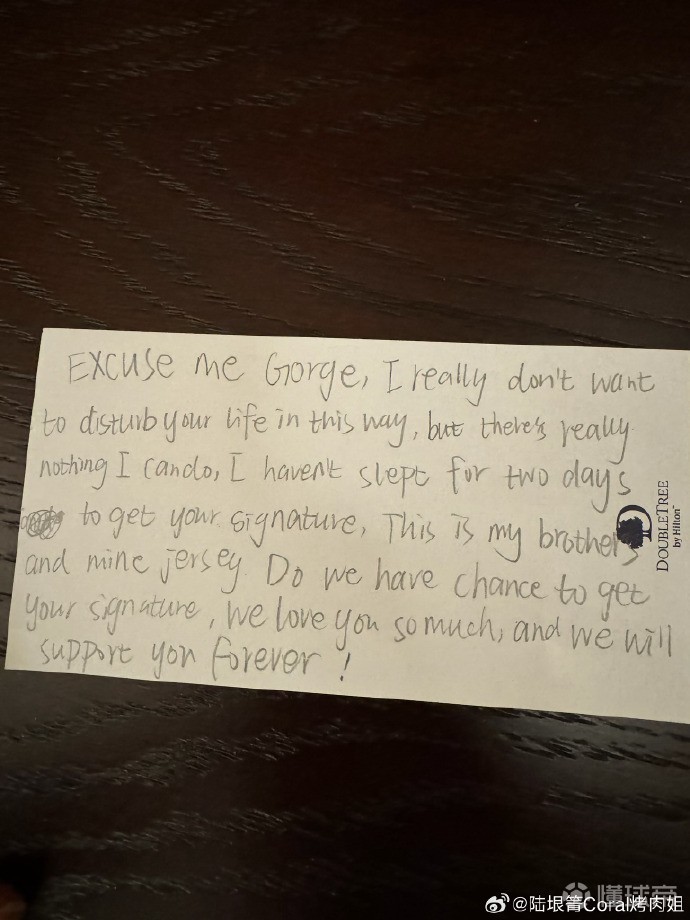 Excuse me Gorge, I really don't want
to disturb your life in this way, but there's really
nothing I can do, I haven't slept for two days
to get your signature, This is my brothers
and mine jersey Do we have chance to get
your signature, We love you so much, and we will
support you forever!
DOUBLETREE
by Hilton™
懂球帝
@陆垠箐Coral烤肉姐